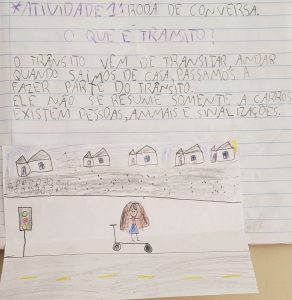 *ATIVIDADE 1: RODA DE CONVERSA.
O QUE É TRÂNSITO?
O TRÂNSITO VEM DE TRANSITAR, ANDAR
QUANDO SAÍMOS DE CASA, PASSAMOS A
FAZER PARTE DO TRÂNSITO.
ELE NÃO SE RESUME SOMENTE A CARROS
EXISTEM PESSOAS, ANIMAIS E SINALIZAÇÕES.